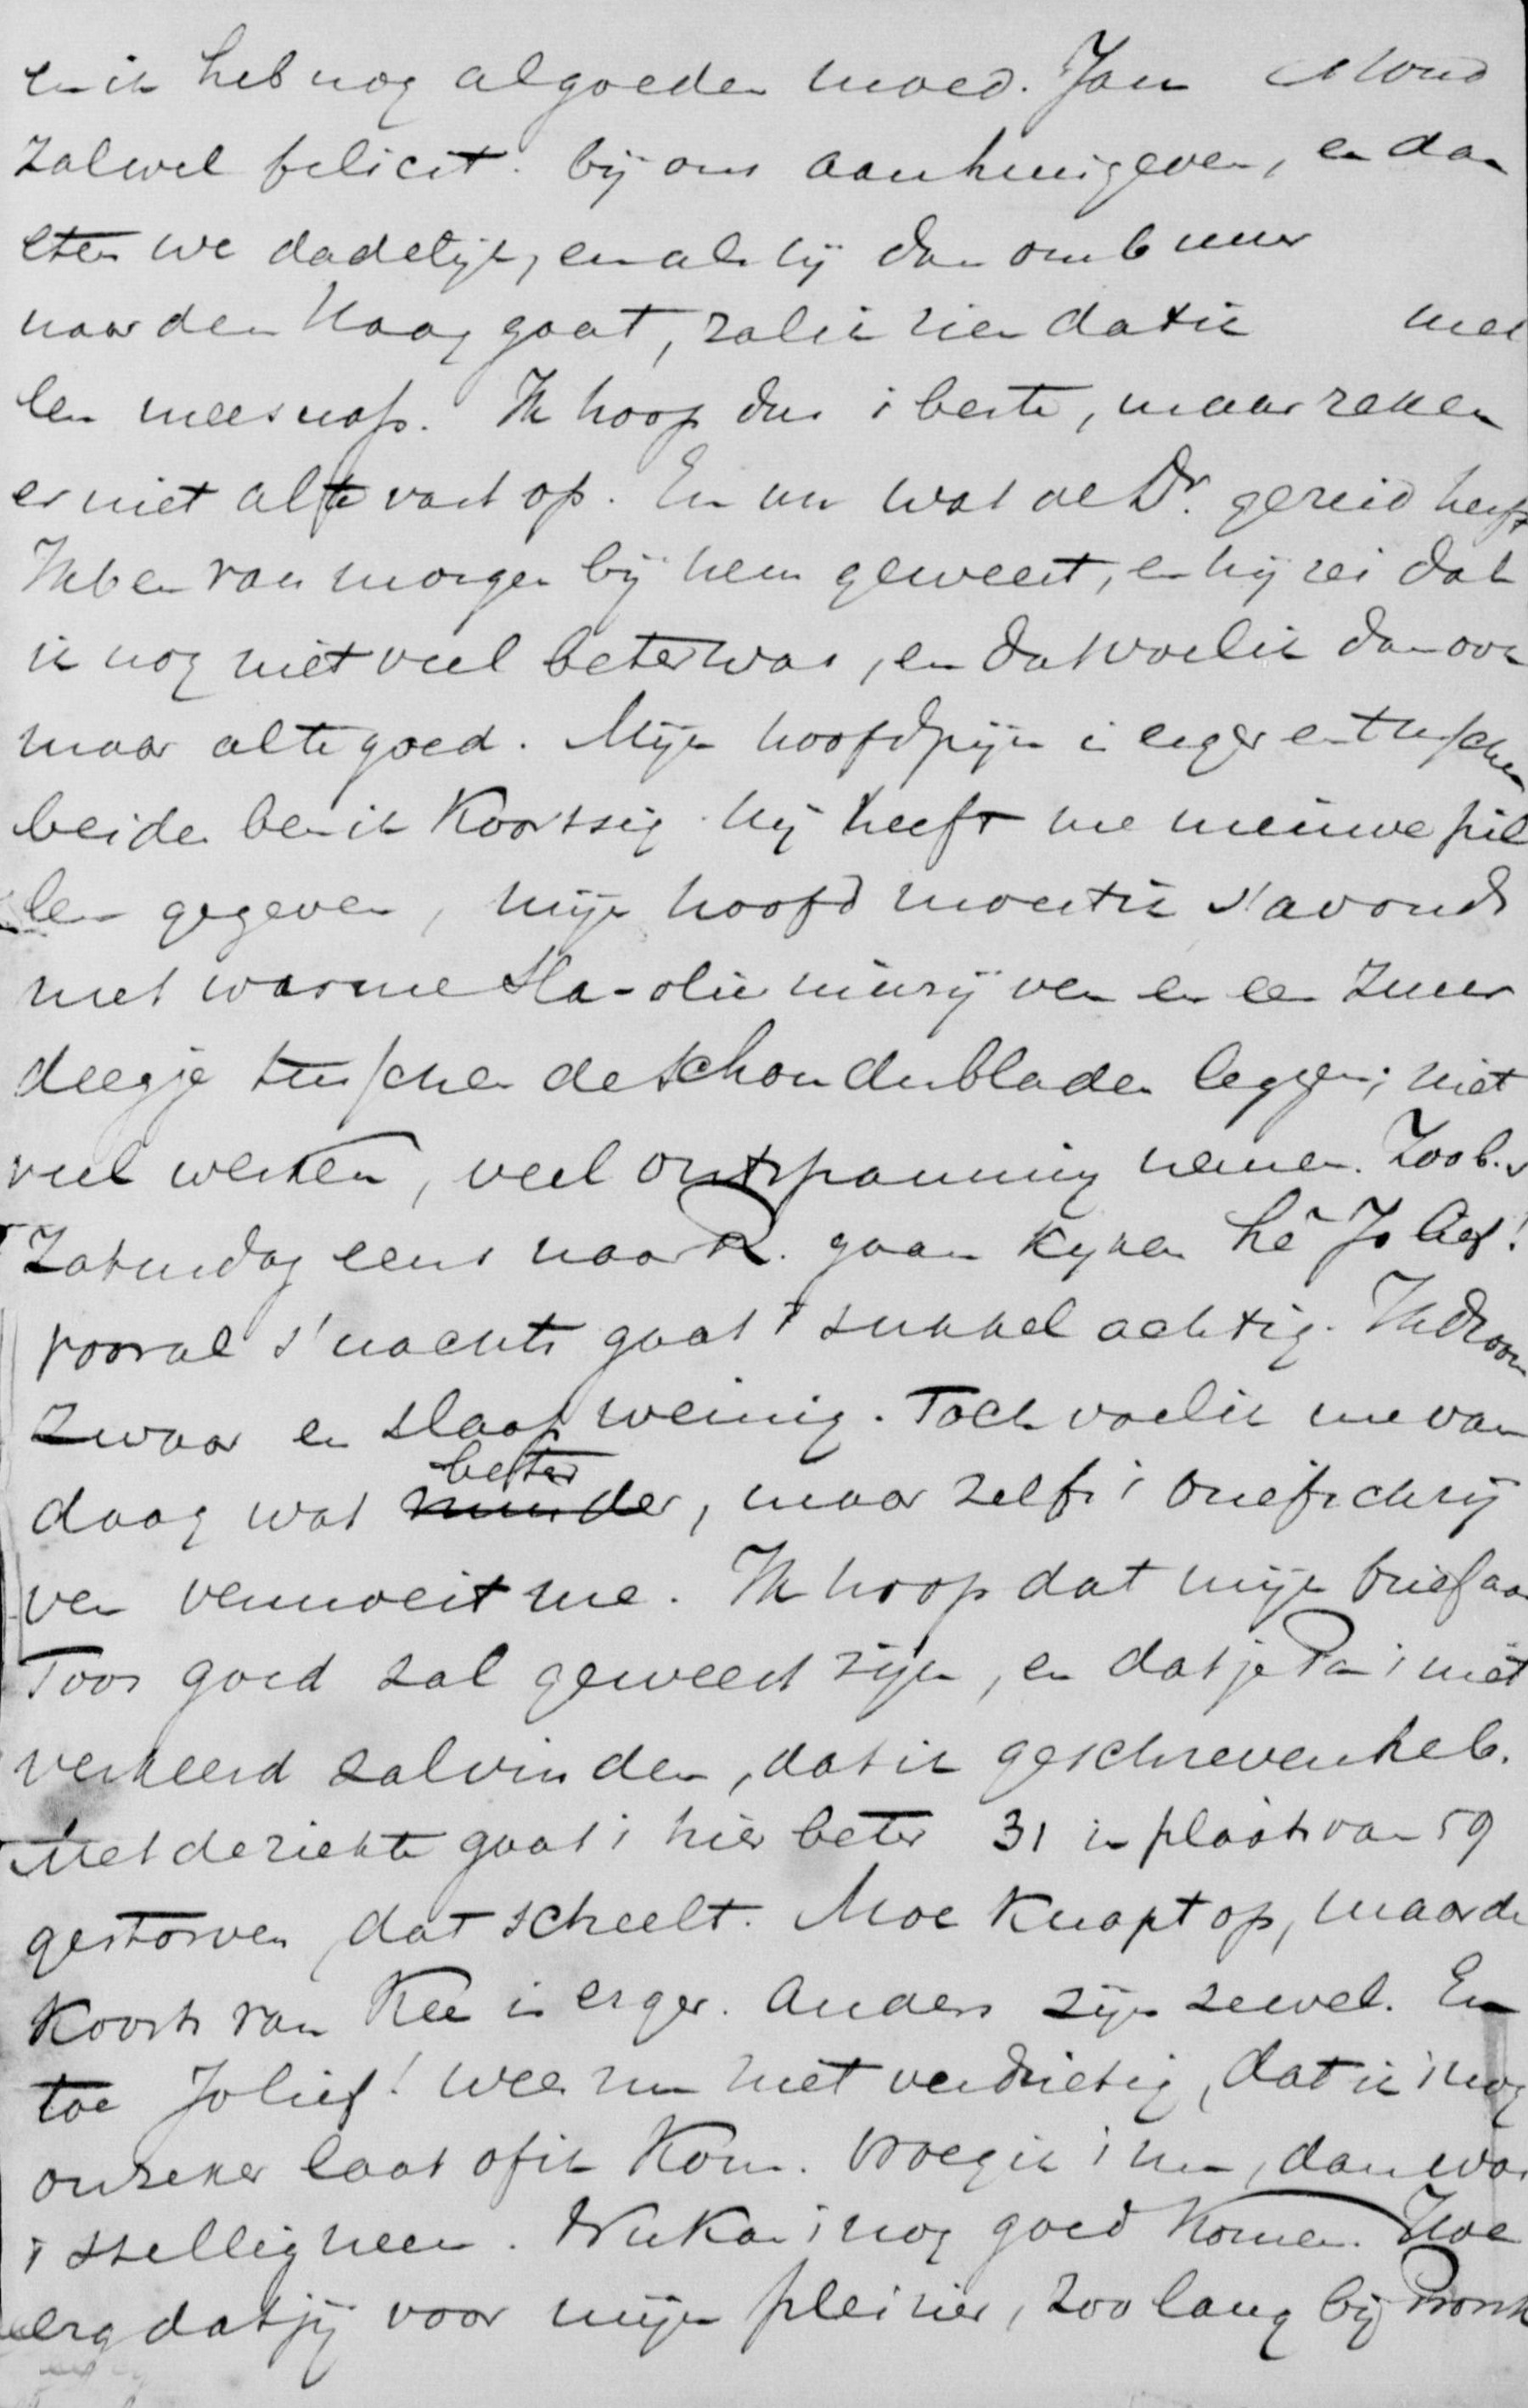 en ik heb nog al goeden moed. Jan
zal wel felicit. bij ons aan huis geven, en dan
eten we dadelijk, en als hij dan om 6 uur
naar den Haag gaat, zal ik zien dat ik
meesnap. Ik hoop dus 't beste, maar reken
er niet al te vast op. En nu wat de Dr. gezeid heeft
Ik ben van morgen bij hem geweest, en hij zei dat
ik nog niet veel beter was, en dat voel ik dan ook
maar al te goed. Mijn hoofdpijn is erger en tusschen
beiden ben ik Koortsig. hij heeft me nieuwe pil
len gegeven, mijn hoofd moet ik s'avonds
met warme Sla-olie inwrijven en een zuur
deegje tusschen de schouderbladen leggen; niet
veel werken, veel ontspanning nemen. Zoo b.v
Zaturdag eens naar R. gaan kyken hê Jo lief!
vooral s'nachts gaat 't sukkelachtig. Ik droom
zwaar en slaap weinig. Toch voel ik me van
daag wat minder beter, maar zelfs 't briefschrij
ven vermoeit me. Ik hoop dat mijn brief aan
Toos goed zal geweest zijn, en dat je Pa 't niet
verkeerd zal vinden, dat ik geschreven heb.
Met de ziekte gaat 't hier beter 31 in plaats van 59
gestorven, dat scheelt. Moe Knapt op, maar de
Koorts van Kee is erger. Anders zijn ze wel. En
toe Jo lief! wees nu niet verdrietig, dat ik 't nog
onzeker laat of ik Kom. vroeg ik 't nu, dan was
't stellig neen. Nu Kan 't nog goed Komen. Hoe
erg dat jij voor mijn pleizier, zoo lang bij Pronk